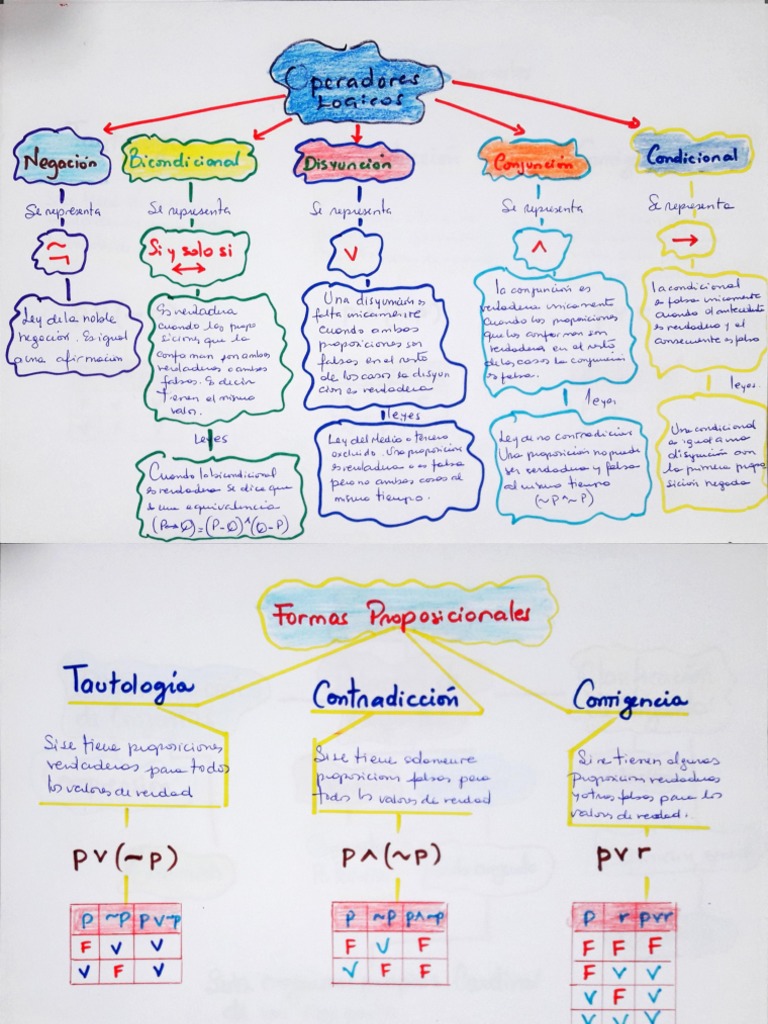 Operadores
Logicos
Negación
Se representa
~
¬
Ley de la noble
negación. Es igual
a una afirmación
Bicondicional
Se representa
Si y solo si
↔
Es verdadera
cuando las propo
siciones que la
conforman son ambas
verdaderas o ambas
falsas. Es decir
tienen el mismo
valor.
leyes
Cuando la bicondicional
es verdadera se dice que
es una equivalencia
Disyunción
Se representa
v
Una disyunción es
falta unicamente
cuando ambas
proposiciones son
falsas en el resto
de los casos la disyun
ción es verdadera
leyes
Ley del Medio o tercero
excluido. Una proposición
es verdadera o es falsa
pero no ambas cosas al
mismo tiempo.
Conjunción
Se representa
^
La conjunción es
verdadera unicamente
cuando las proposiciones
que los conforman son
verdadera en el resto
de los casos la conjunción
es falsa.
leyes
Ley de no contradicción
Una proposición no puede
ser verdadera y falsa
al mismo tiempo
(~P^~P)
Condicional
Se representa
→
La condicional
es falsa unicamente
cuando el antecedente
es verdadero y el
consecuente es falso
leyes
Una condicional
es igual a una
disyunción con
la primera propo
sición negada
Formas Proposicionales
Tautología
Si se tiene proposiciones
verdaderas para todos
los valores de verdad
p v (~p)
p ~p p v ~p
F V V
V F V
Contradicción
Si se tiene solamente
proposicions falsas para
todos los valores de verdad
p ^ (~p)
p ~p p^~p
F V F
V F F
Contigencia
Si se tienen algunas
proposicions verdaderas
y otras falsas para los
valores de verdad.
p v r
p r pvr
F F F
F V V
V F V